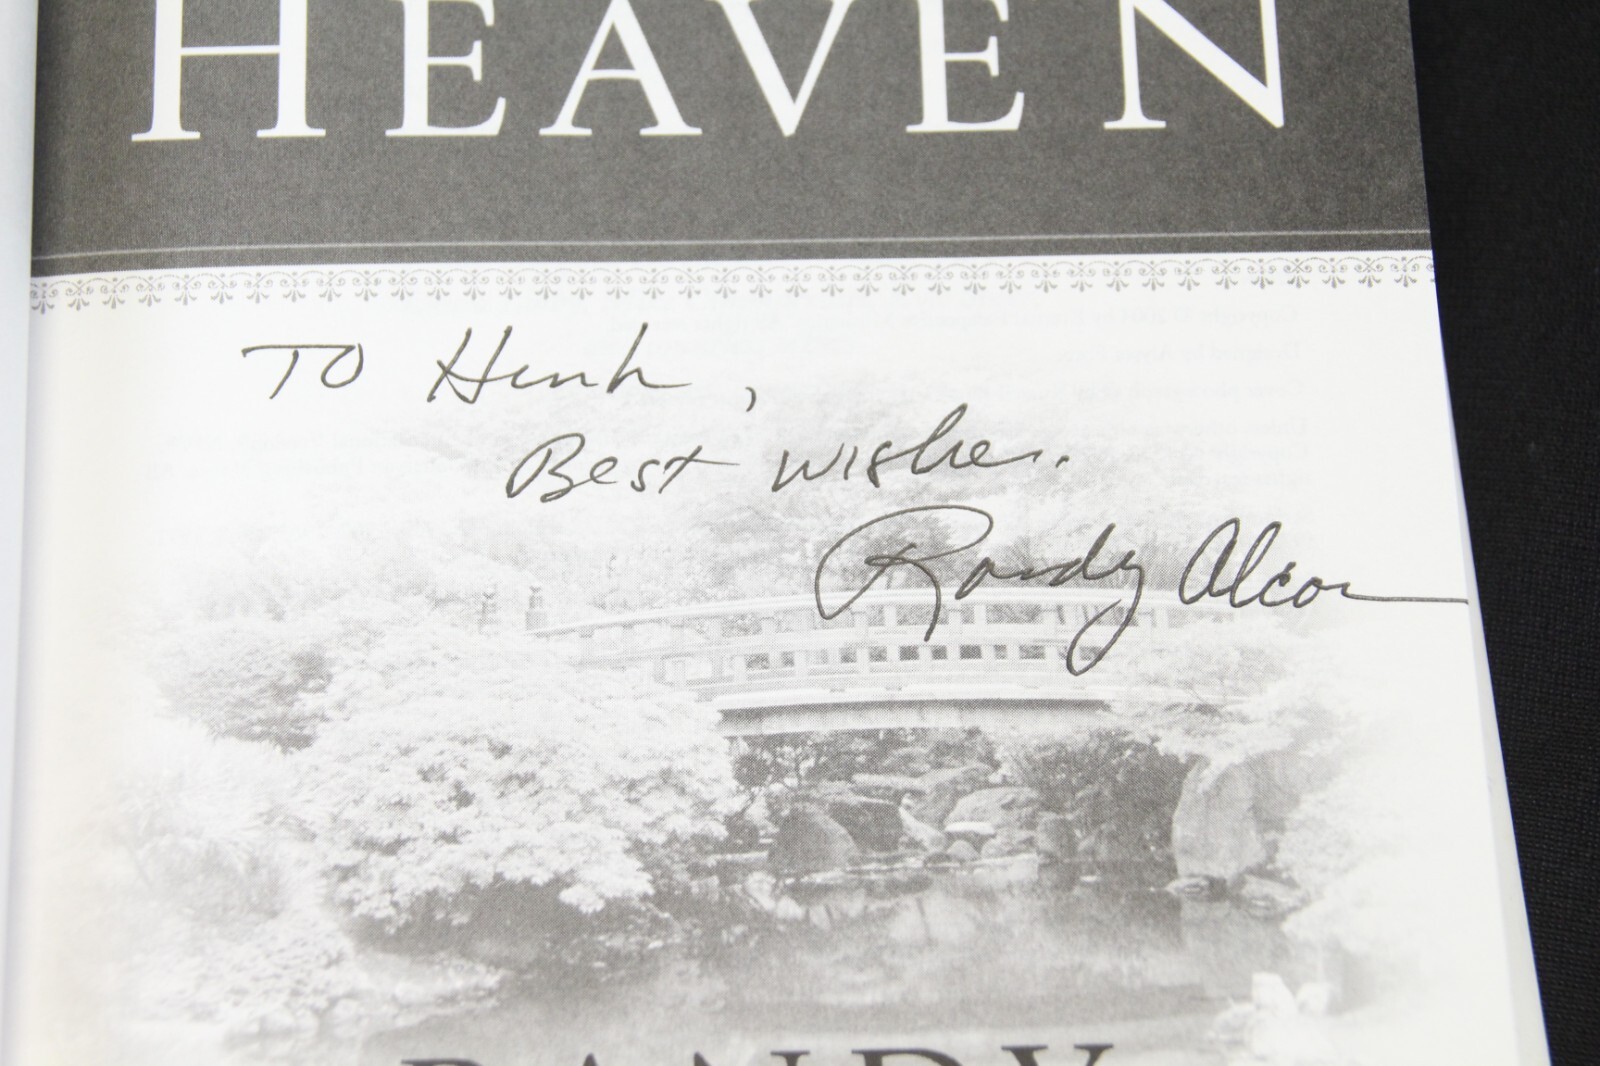 HEAVEN
TO Hank,
Best wishes.
Randy Alcorn
RANDY